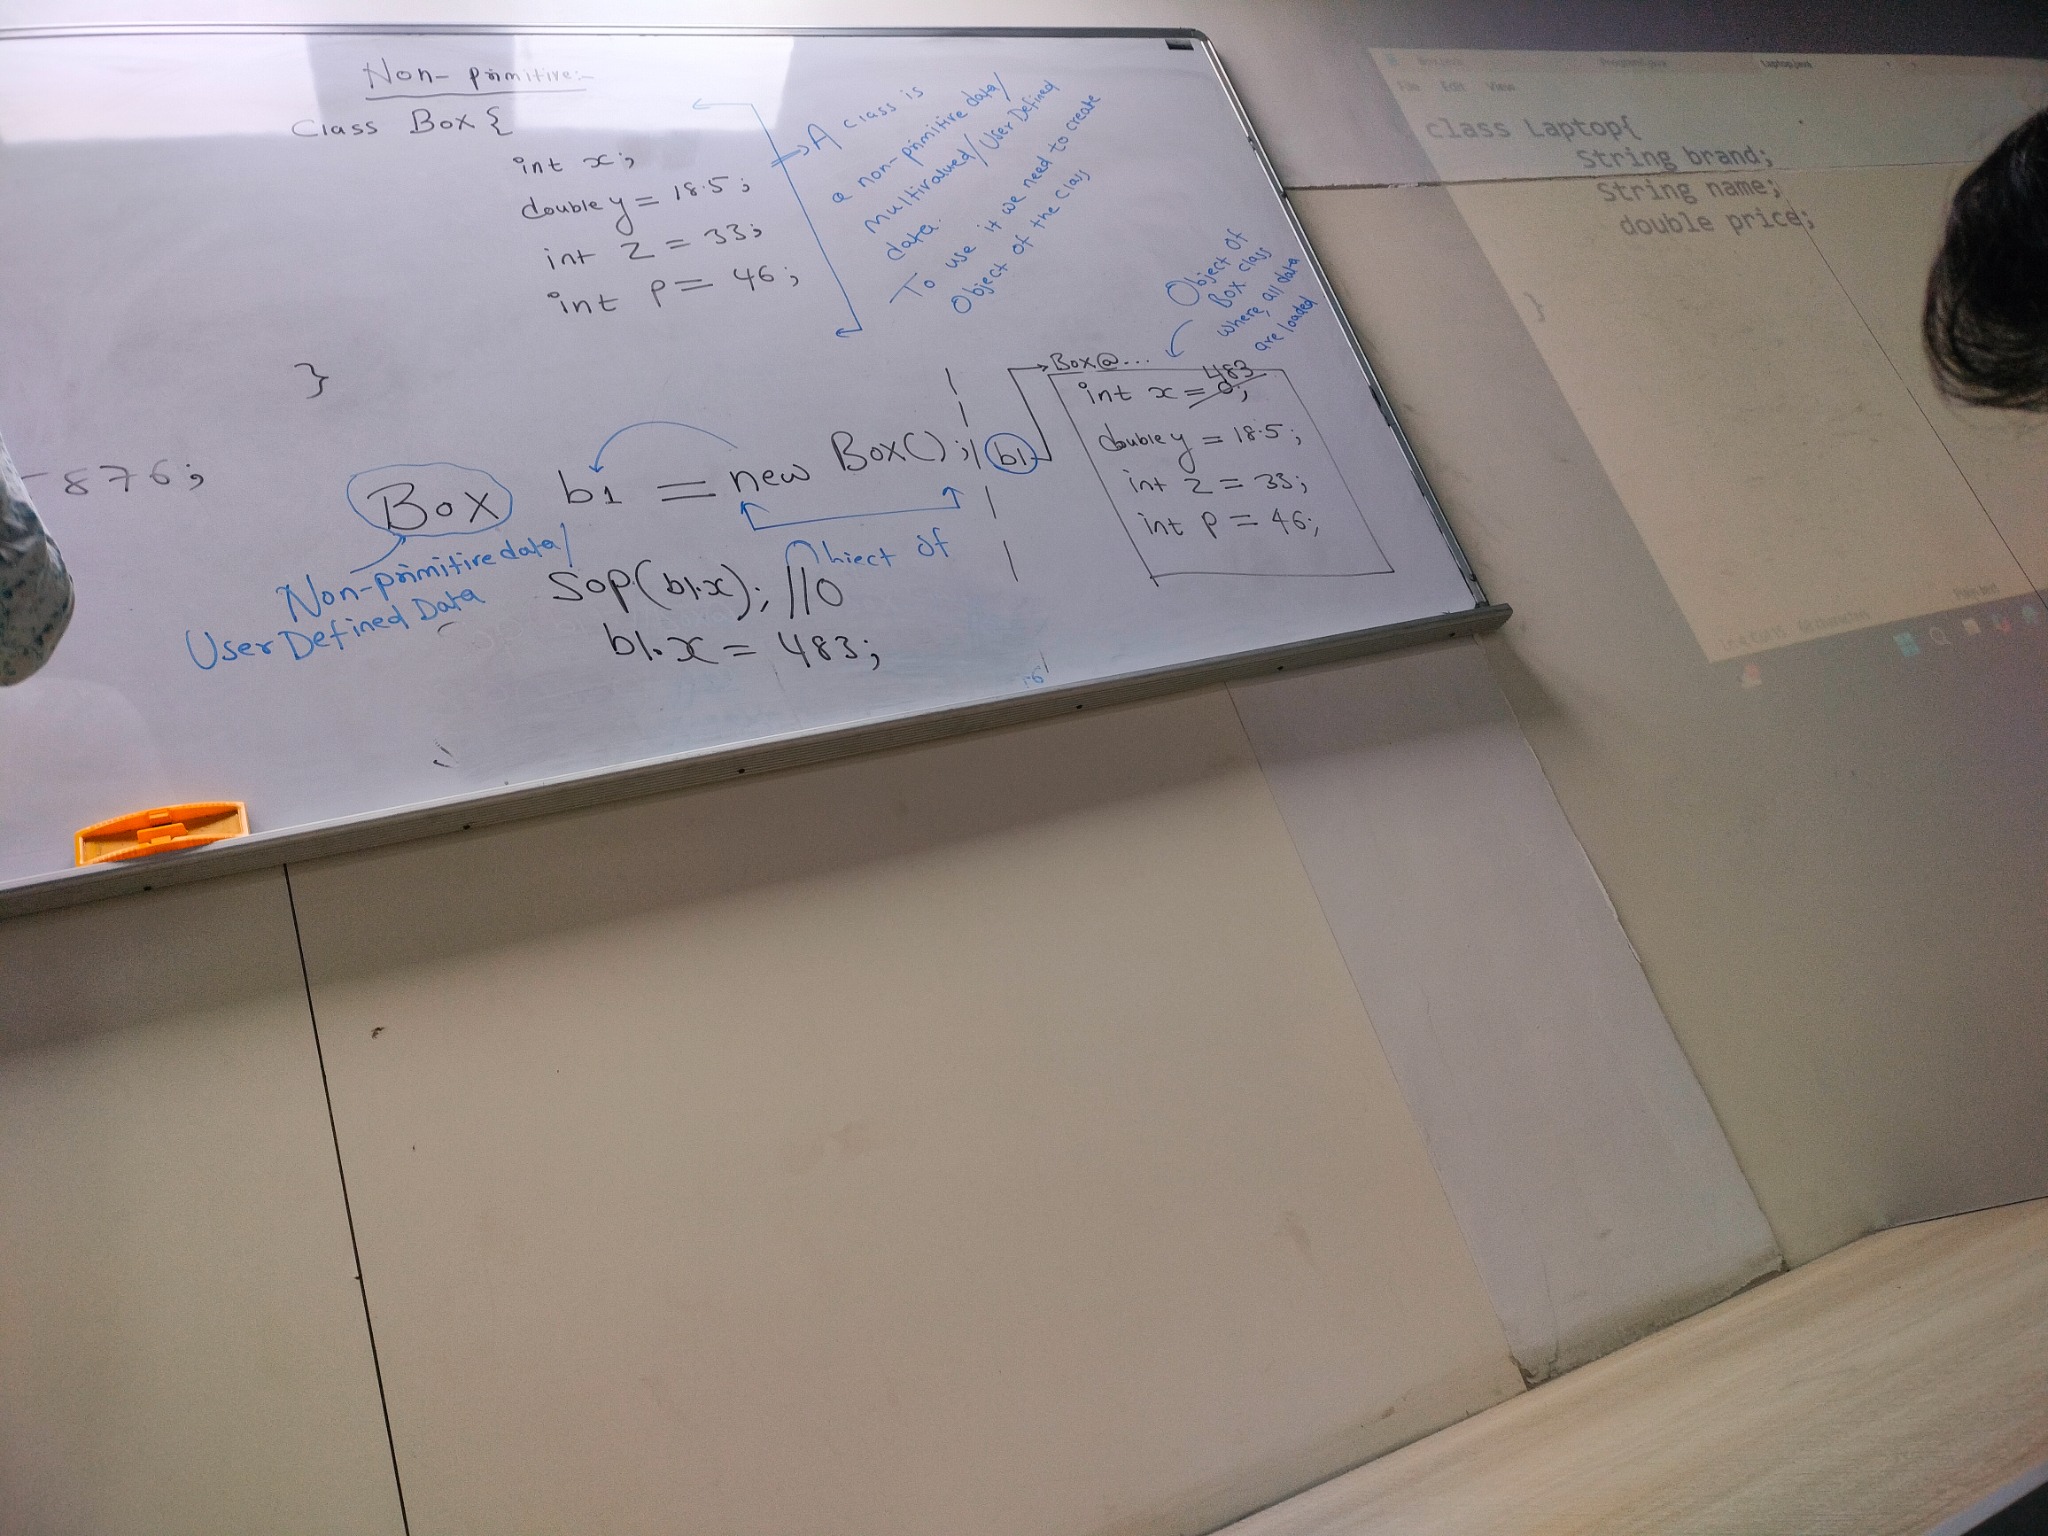 Non-primitive:-
Class Box {
int x;
double y = 18.5;
int z = 33;
int p = 46;
}
A class is
a non-primitive data/
multivalued/User Defined
data.
To use it we need to create
Object of the class
-876;
Box b1 = new Box();
Non-primitive data/
User Defined Data
Object of
Sop(b1.x); //0
b1.x = 483;
b1
Box@...
Object of
Box class
where all data
are loaded
483
int x = 0;
double y = 18.5;
int z = 33;
int p = 46;
Laptop.java
File Edit View
class Laptop{
String brand;
String name;
double price;
}